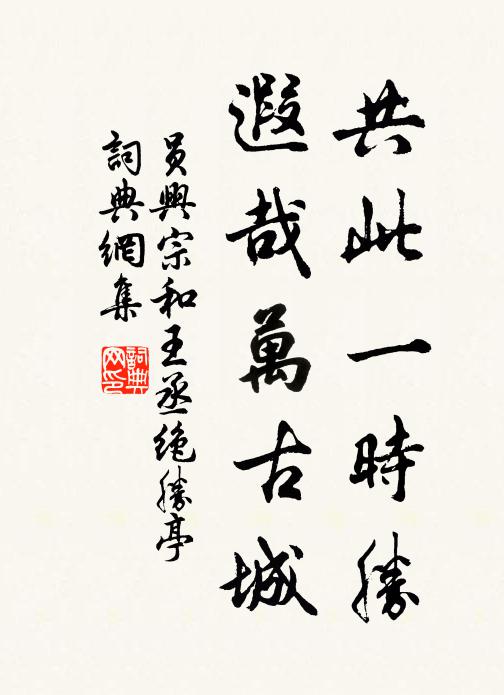 共此一時勝
遐哉萬古城
員興宗和王丞絶勝亭
詞典網集
詞典
网印